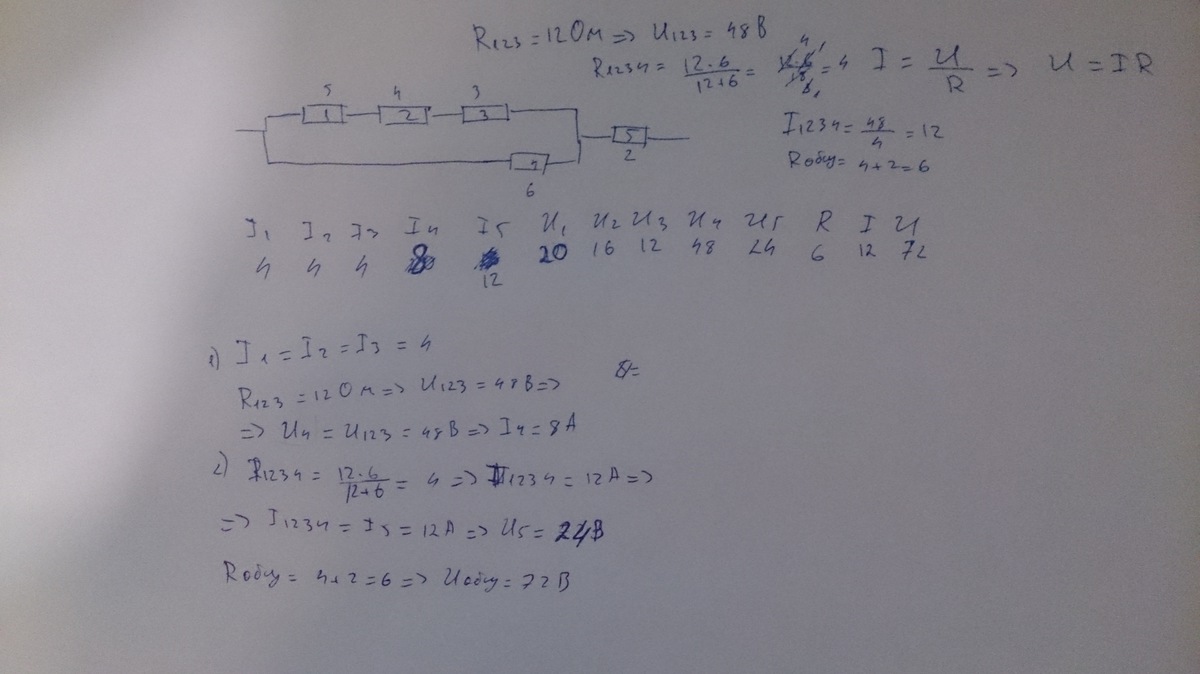 R₁₂₃ = 12 Ом => U₁₂₃ = 48 В
R₁₂₃₄ = 12·6 / 12+6 = = 4
I = U / R => U = IR
I₁₂₃₄ = 48 / 4 = 12
Rобщ = 4+2=6
5 4 3
1 2 3
5
2
4
6
I₁ I₂ I₃ I₄ I₅ U₁ U₂ U₃ U₄ U₅ R I U
4 4 4 8 12 20 16 12 48 24 6 12 72
1) I₁ = I₂ = I₃ = 4
R₁₂₃ = 12 Ом => U₁₂₃ = 48 В =>
=> U₄ = U₁₂₃ = 48 В => I₄ = 8 А
2) R₁₂₃₄ = 12·6 / 12+6 = 4 => I₁₂₃₄ = 12 А =>
=> I₁₂₃₄ = I₅ = 12 А => U₅ = 24 В
Rобщ = 4+2=6 => Uобщ = 72 В